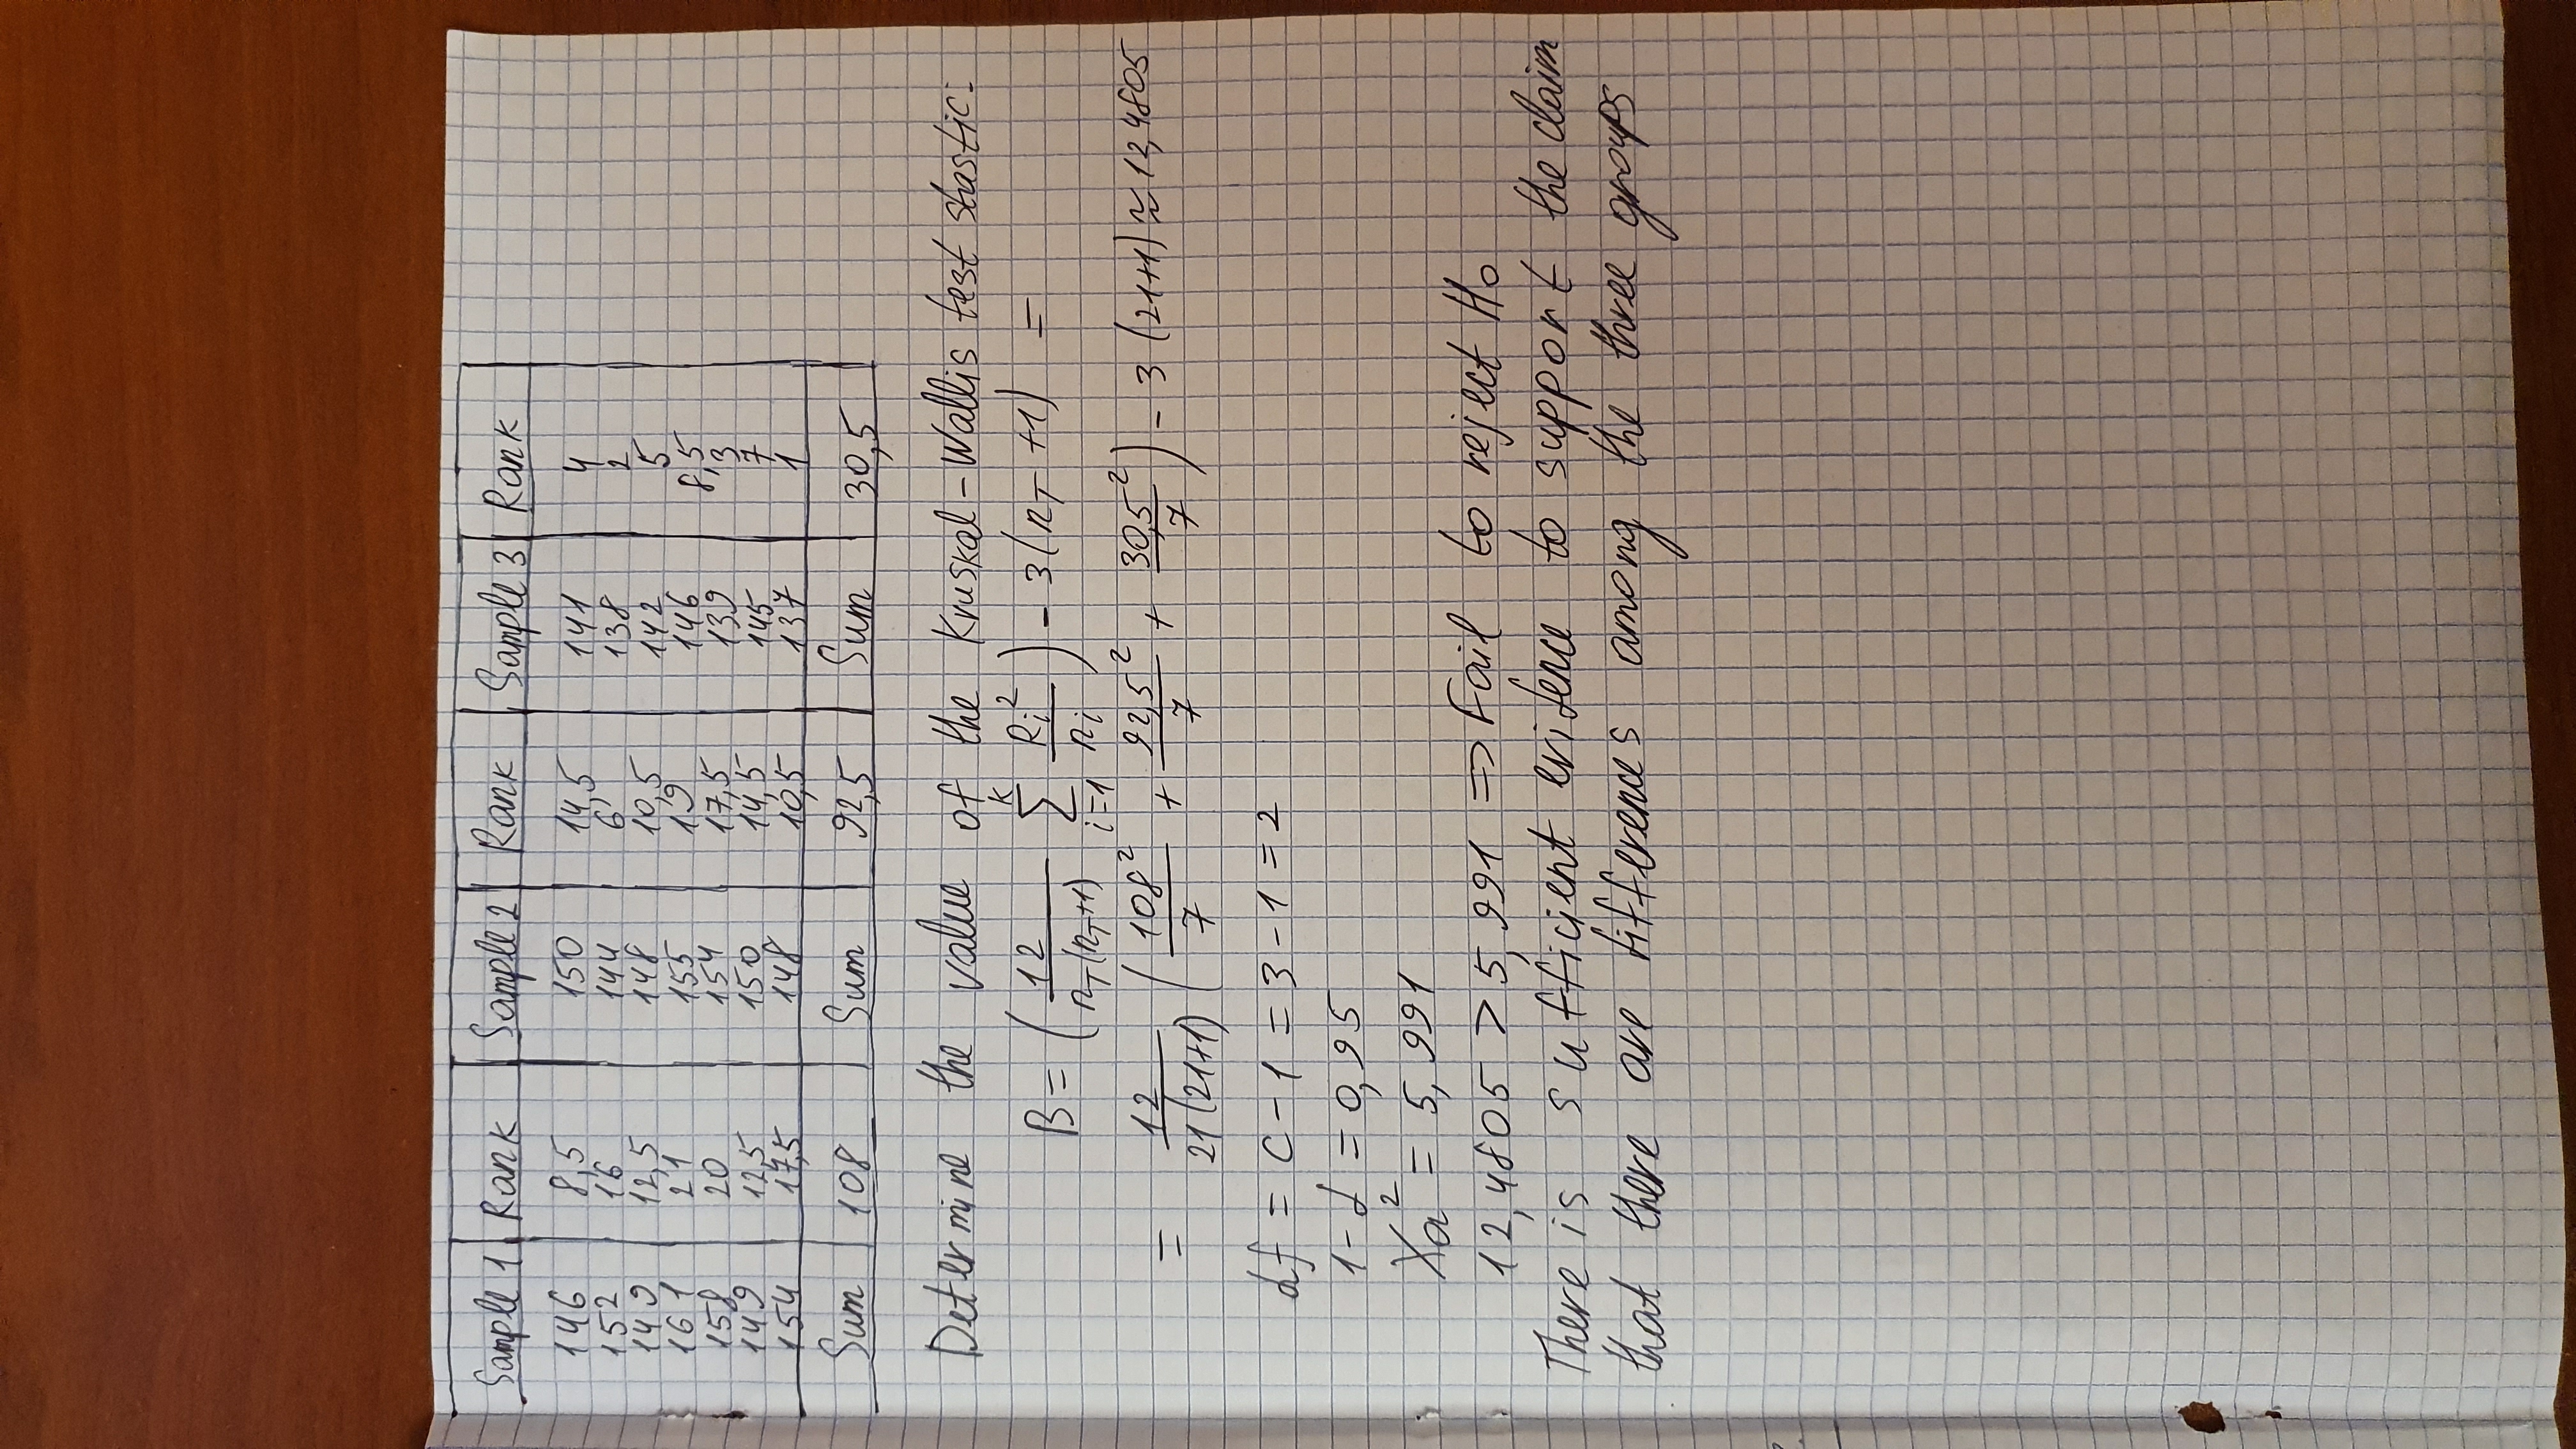 Sample 1 Rank Sample 2 Rank Sample 3 Rank
146 8,5 150 14,5 141 4
152 16 144 6 138 2
149 12,5 148 10,5 142 5
161 21 155 19 146 8,5
158 20 154 17,5 139 3
149 12,5 150 14,5 145 7
154 17,5 148 10,5 137 1
Sum 108 Sum 92,5 Sum 30,5
Determine the value of the Kruskal-Wallis test stastic:
B = (12/(n_T(n_T+1)) Σ_{i=1}^{K} R_i²/n_i) - 3(n_T+1) =
= 12/(21(21+1)) (108²/7 + 92,5²/7 + 30,5²/7) - 3(21+1) ≈ 12,4805
df = C-1 = 3-1 = 2
1-α = 0,95
X_a² = 5,991
12,4805 > 5,991 => Fail to reject H₀
There is sufficient evidence to support the claim
that there are differences among the three groups